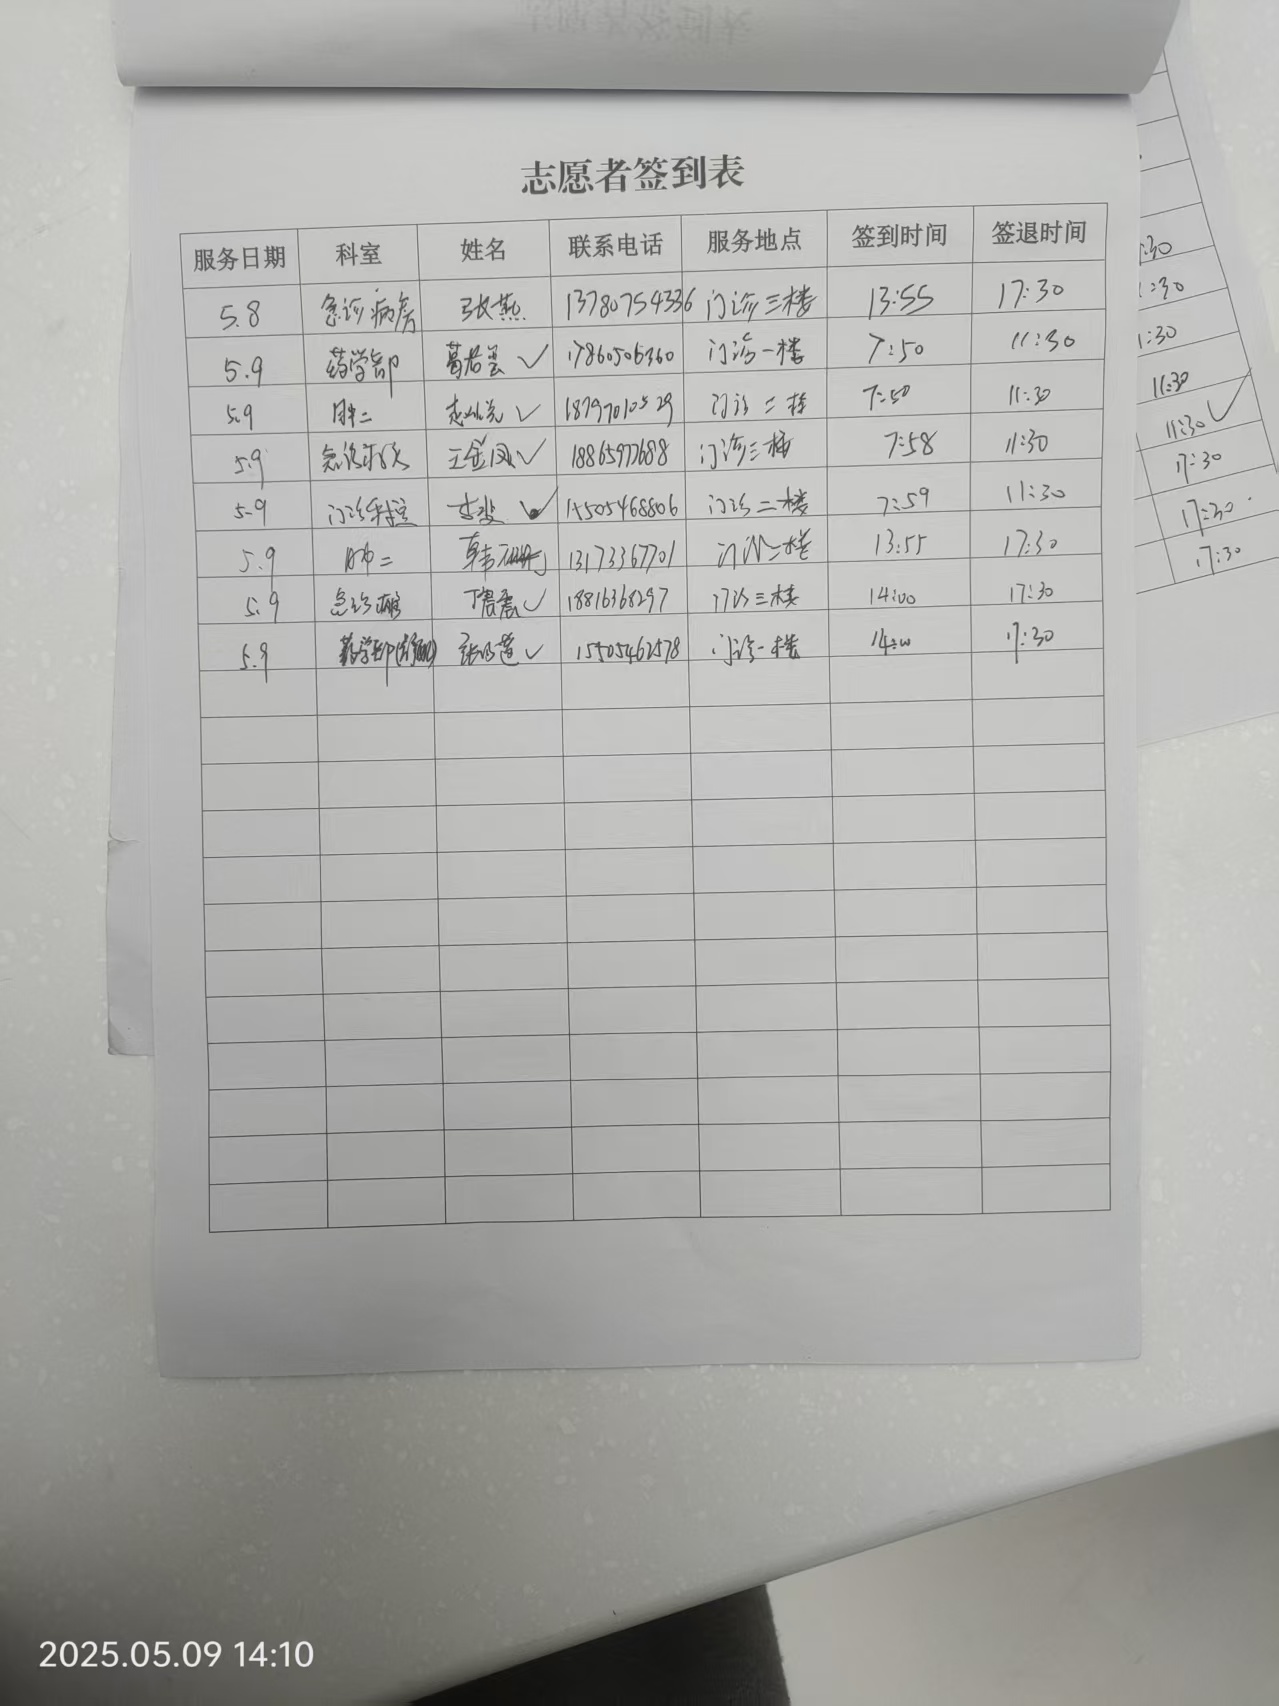 志愿者签到表
服务日期 科室 姓名 联系电话 服务地点 签到时间 签退时间
5.8 急诊病房 张燕 13780754336 门诊三楼 13:55 17:30
5.9 药学部 葛若芸 ✓ 17860506360 门诊一楼 7:50 11:30
5.9 肿二 ✓ 18797010529 门诊二楼 7:50 11:30
5.9 王金凤 ✓ 18865977688 门诊三楼 7:58 11:30
5.9 门诊 李斐 ✓ 15505468806 门诊二楼 7:59 11:30
5.9 肿二 韩 13173367701 门诊二楼 13:55 17:30
5.9 急诊 ✓ 18816368297 门诊三楼 14:00 17:30
5.9 药学部 ✓ 15505462578 门诊一楼 14:00 17:30
:30
1:30
1:30
11:30
11:30 ✓
17:30
17:30
17:30
2025.05.09 14:10